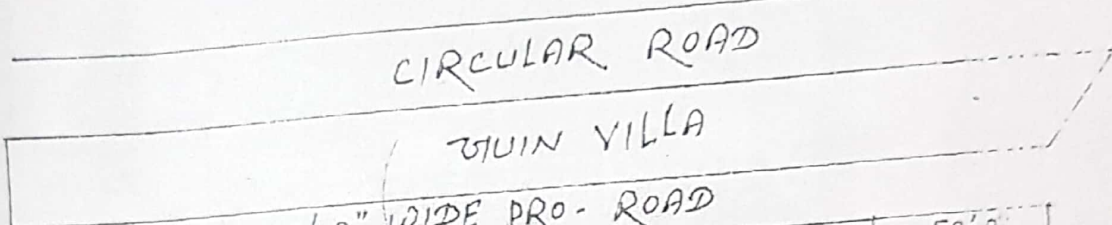 CIRCULAR ROAD
VILLA
WIDE PRO- ROAD